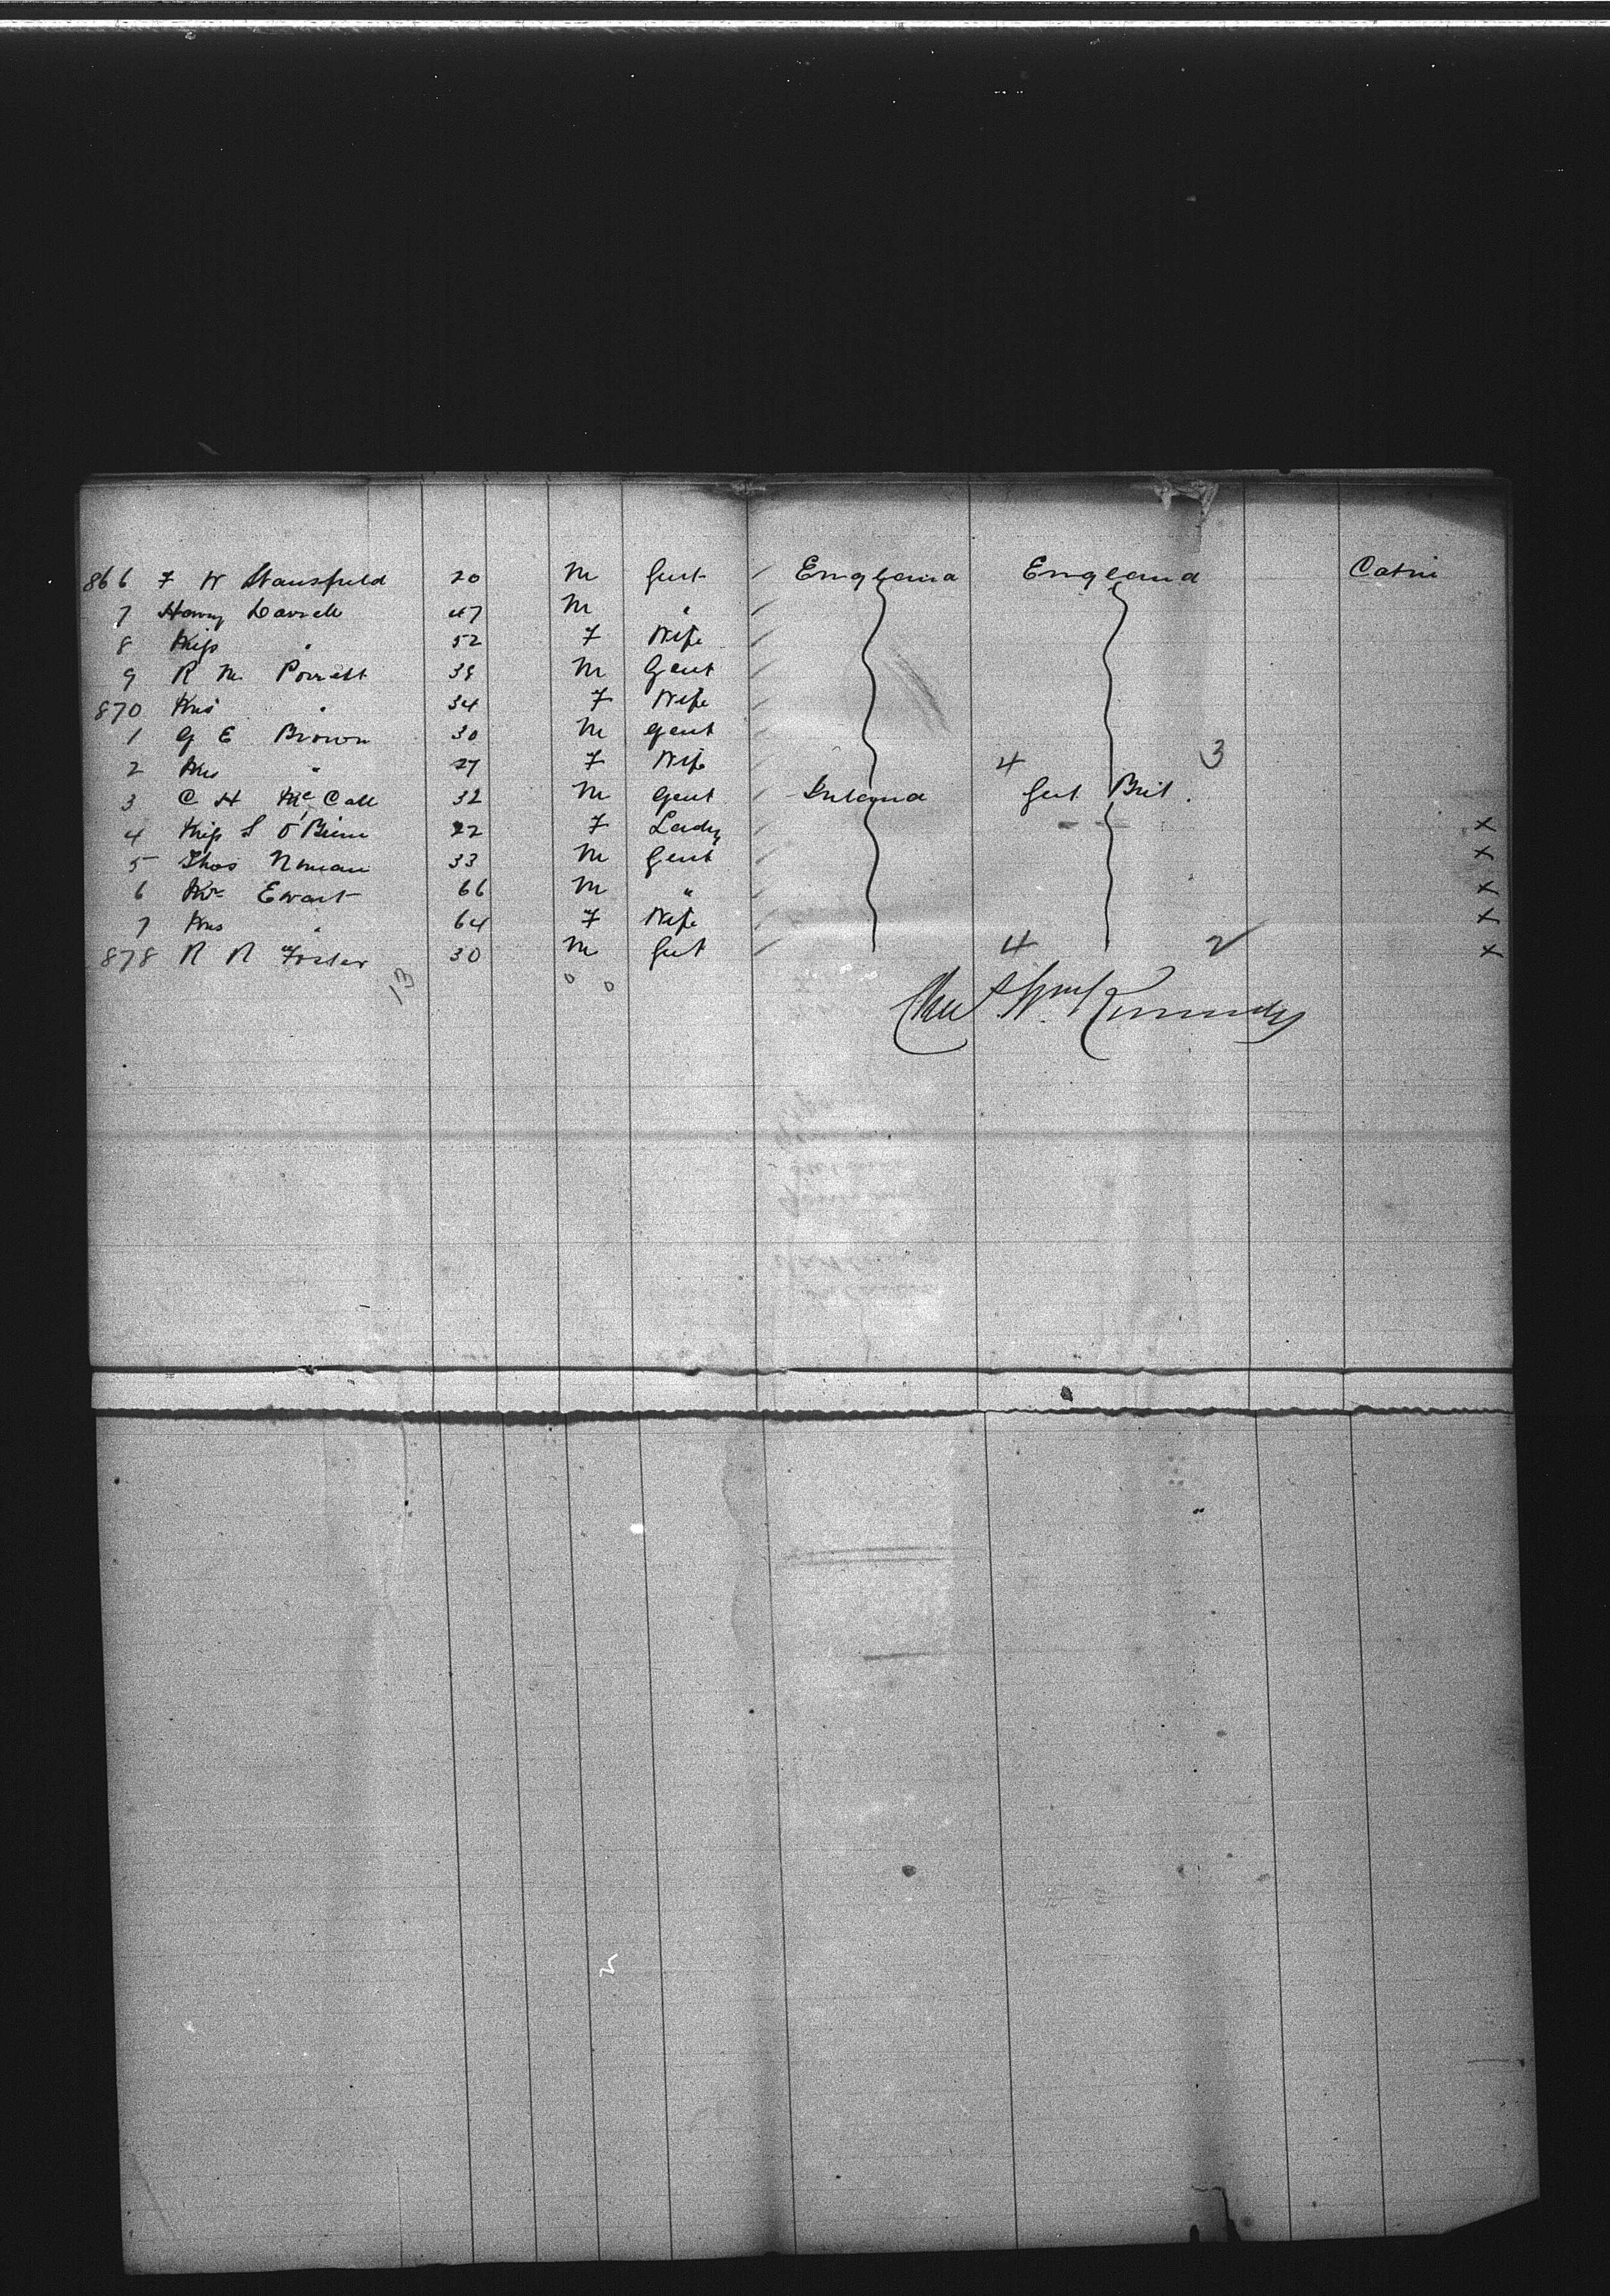 866 F W Stansfield 20 M Gent / England England Cabin
7 Harry Darrell 47 M " /
8 Miss " 52 F Wife /
9 R M Porrett 38 M Gent /
870 Mrs " 34 F Wife /
1 G E Brown 30 M Gent /
2 Mrs " 27 F Wife / 4 3
3 C H McCall 32 M Gent Ireland Gert Brit.
4 Miss S O'Birne 22 F Lady / x
5 Thos 33 M Gent / x
6 Mr Ewart 66 M " / x
7 Mrs " 64 F Wife / x
878 R R Foster 30 M Gent / 4 2 x
13
Kennedy